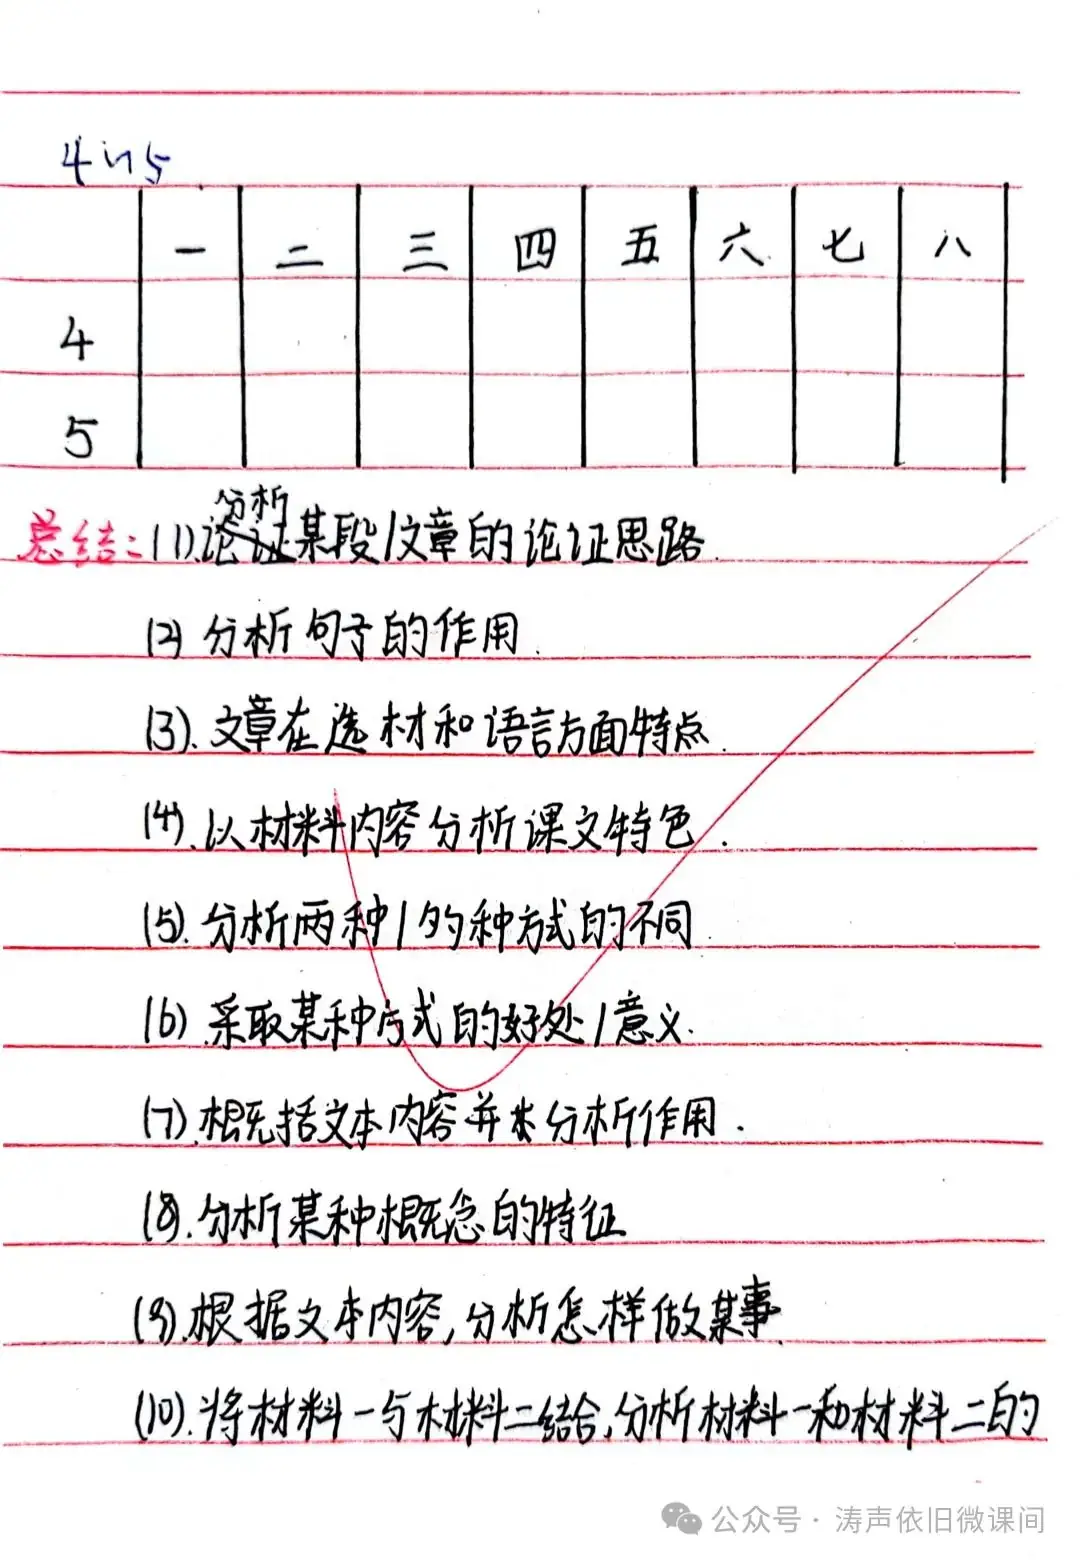 4们5
一 二 三 四 五 六 七 八
4
5
分析
总结:(1).论证某段/文章的论证思路.
(2) 分析句子的作用.
(3).文章在选材和语言方面特点.
(4).以材料内容分析课文特色.
(5).分析两种/的种方式的不同
(6).采取某种方式的好处/意义.
(7).概括文本内容并分析作用.
(8).分析某种概念的特征
(9).根据文本内容,分析怎样做某事.
(10).将材料一与材料二结合,分析材料一和材料二的
公众号·涛声依旧微课间